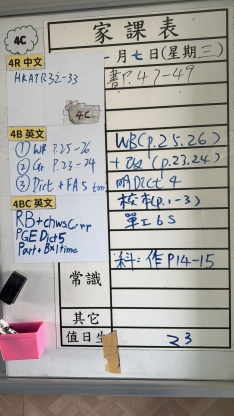 家課表
4C
一月七日(星期三)
4R 中文
HKATR32-33
書P.47-49
4C
4B 英文
① WB P.25-26
② Gr P.23-24
③ Dict + FAS
WB(P.25.26)
(P.23,24)
Dict 4
4BC 英文
RB+chws.Crnr
PGE Dict5
Part+Bx1time
校本(P.1-3)
單工6S
常識
科:作P14-15
其它
值日生
23